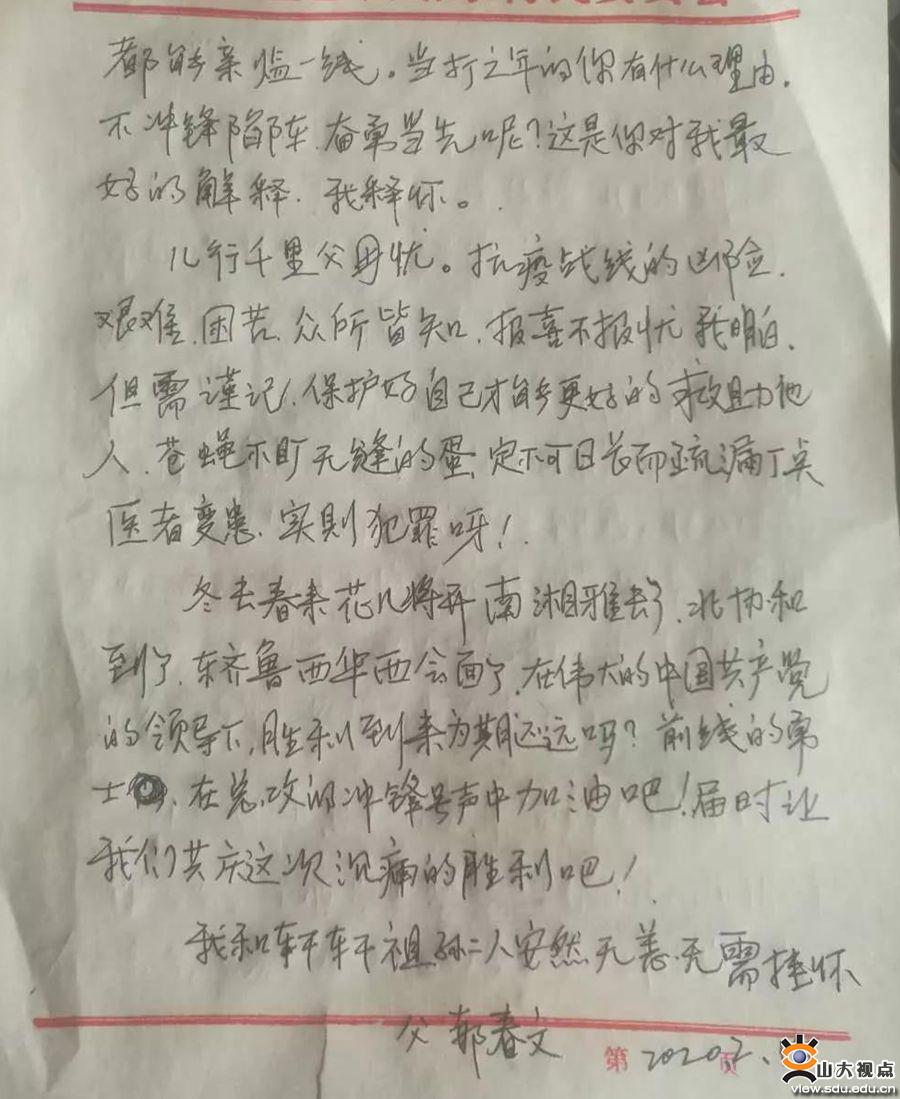 都能亲临一线。当打之年的你有什么理由.
不冲锋陷阵.奋勇当先呢?这是你对我最
好的解释.我释怀。
儿行千里父母忧。抗疫战线的凶险.
艰难.困苦.众所皆知.报喜不报忧我明白.
但需谨记.保护好自己才能更好的救助他
人.苍蝇不盯无缝的蛋.定不可日长而疏漏丁点
医者变患.实则犯罪呀!
冬去春来花儿将开南湘雅去了.北协和
到了.东齐鲁西华西会面了.在伟大的中国共产党
的领导下,胜利到来为期还远吗?前线的勇
士.在总攻的冲锋号声中加油吧!届时让
我们共庆这次沉痛的胜利吧!
我和轩轩祖孙二人安然无恙.无需挂怀
父 郝春文
第 页 2020.2.
山大视点
view.sdu.edu.cn